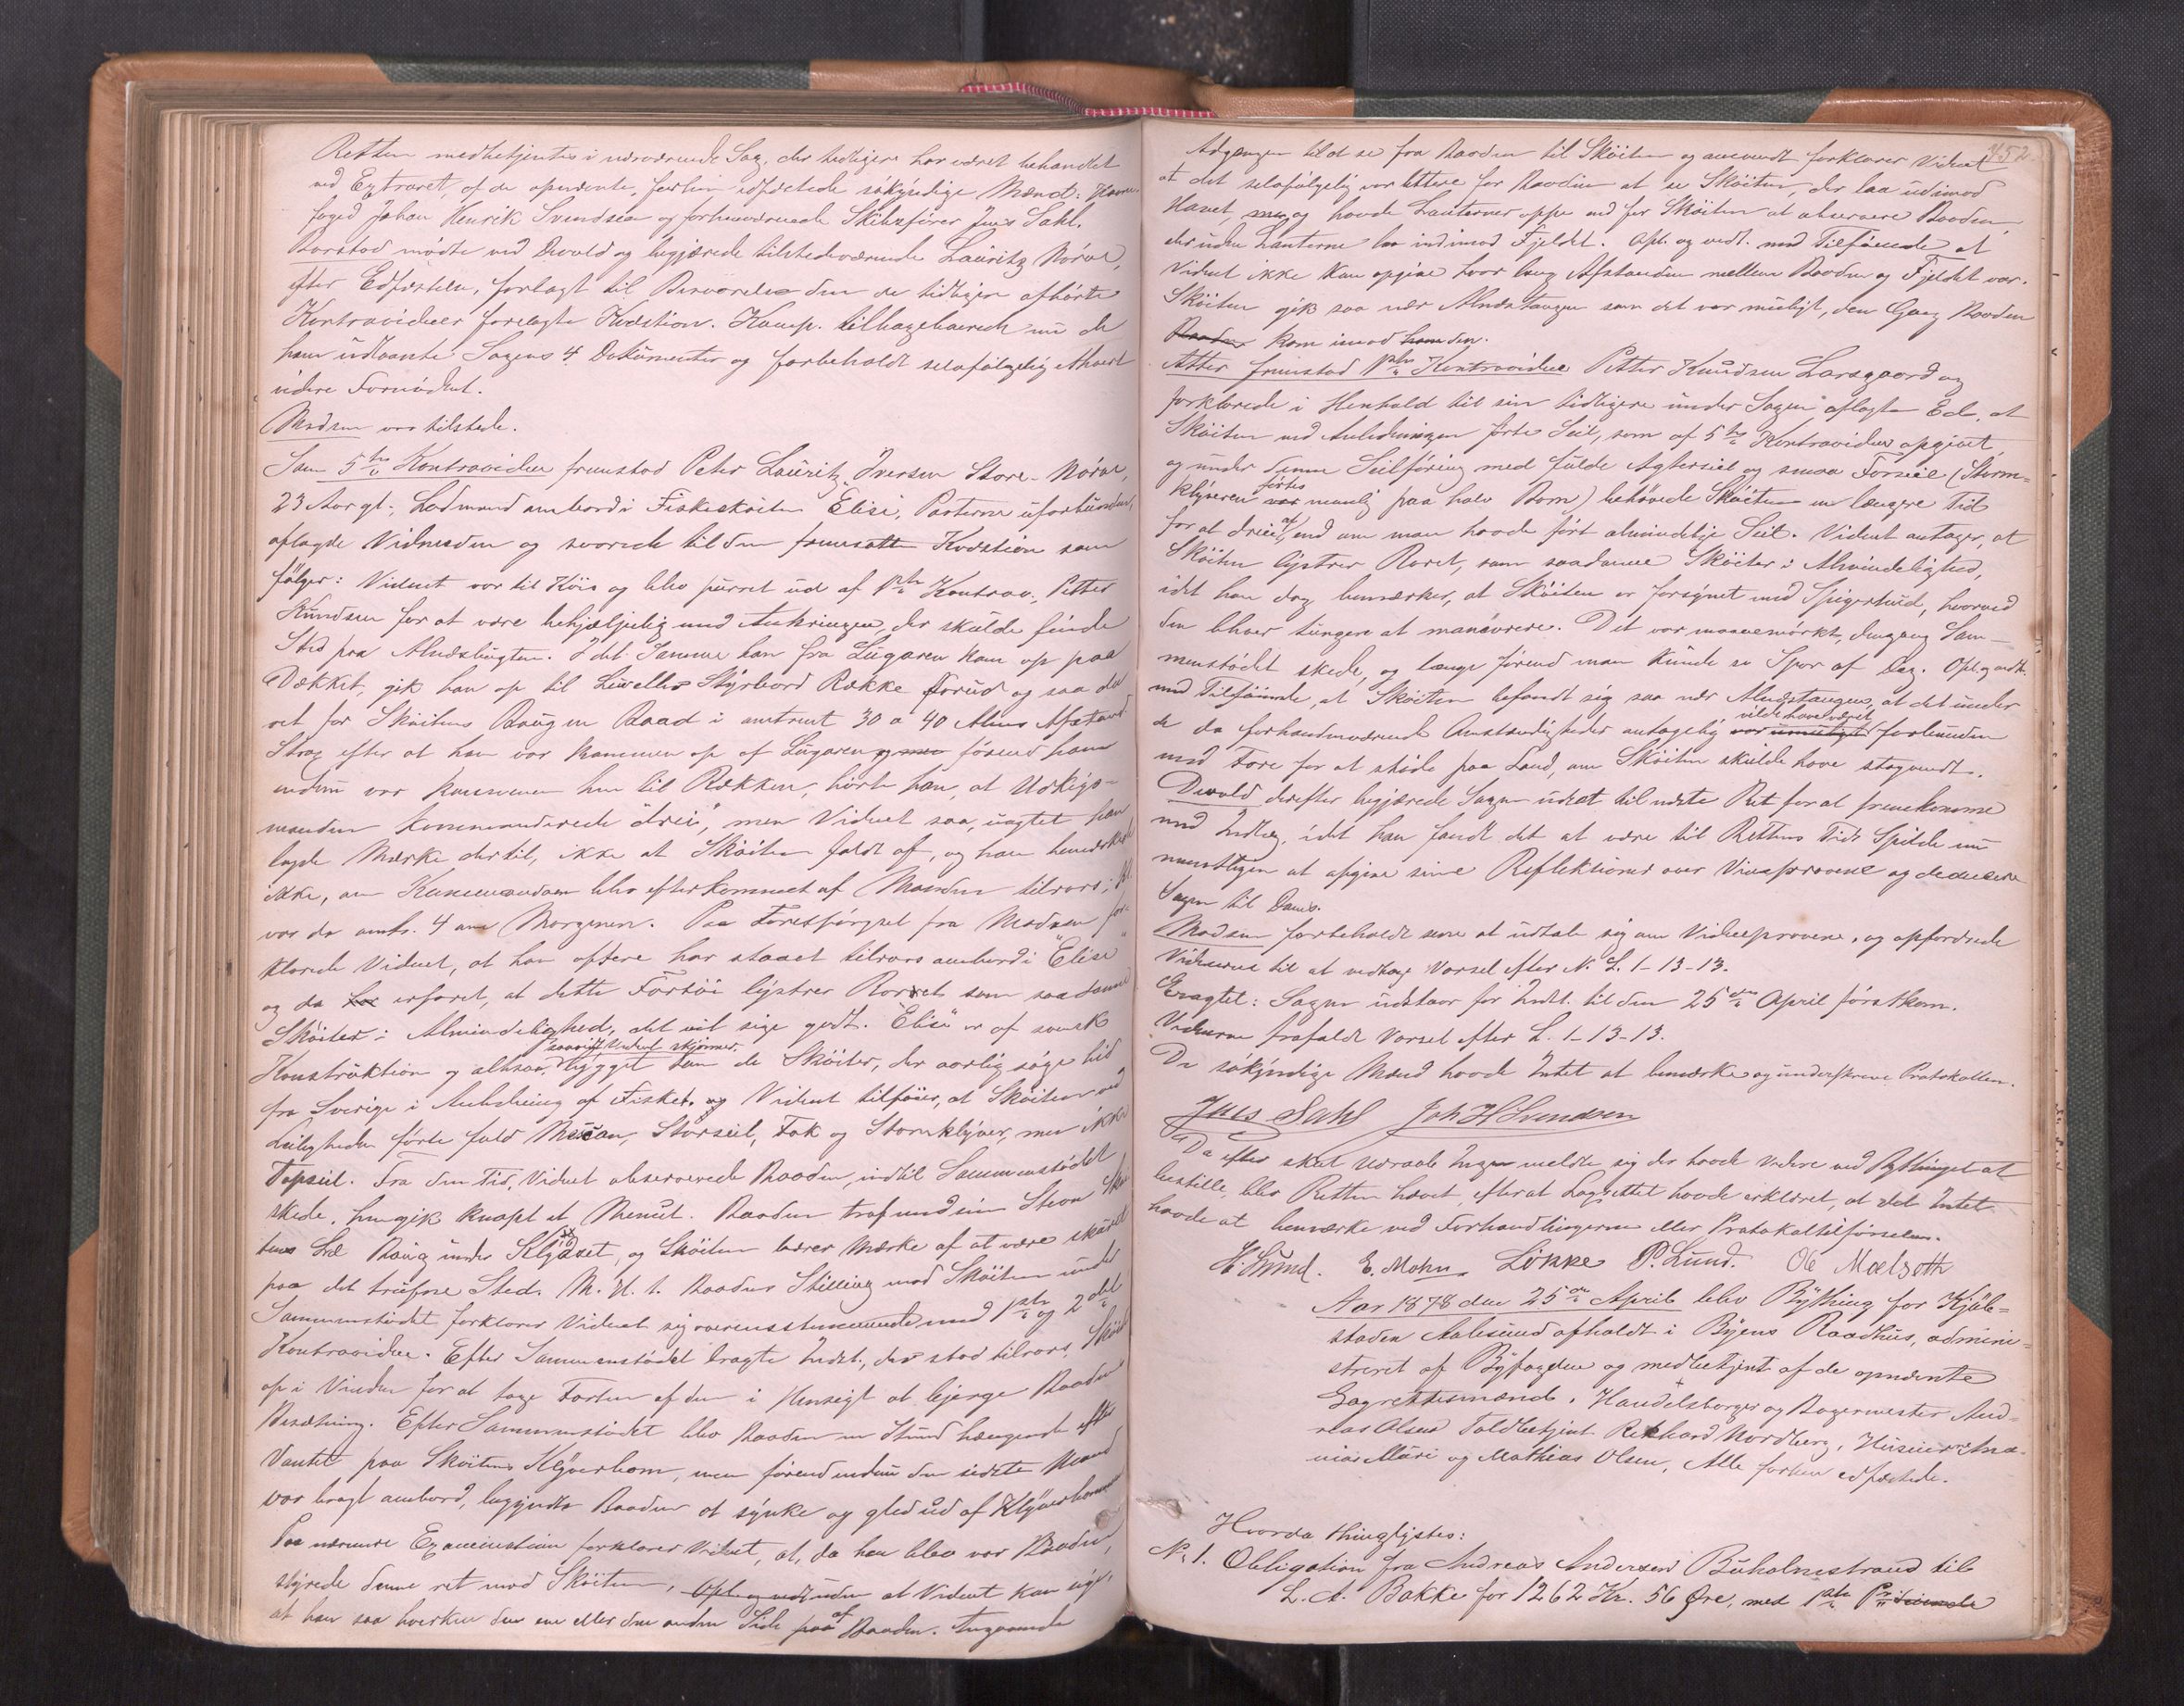 Retten medbetjentes i nærværende Sag, der tidligere har været behandlet
ved Extraret, af de opnævnte, forhen edfæstede søkyndige Mænd: Havne-
foged Johan Henrik Svendsen og forhenværende Skibsfører Jens Dahl.
Barstad mødte ved Devold og begjærede tilstedeværende Lauritz Nörve,
efter Edfæstelse, forlagt til Besvarelse den de tidligere afhørte
Kontravidner forelagte Kvæstion. Komp. tilbageleverede nu de
ham udlaante Sagens 4 Dokumenter og forbeholdt selvfølgelig Alt
videre Fornödent.
Madsen var tilstede.
Som 5te Kontravidne fremstod Peter Lauritz Iversen Store-Nörve,
23 Aar gl., Lodmand ombord i Fiskeskøiten Elise, Parterne uforbunden,
aflagde Vidneeden og svarede til den fremsatte Kvæstion som
følger: Vidnet var til Köis og blev purret ud af 1ste Kontrav., Petter
Knudsen for at være behjælpelig med Ankringen, der skulde finde
Sted paa Alnæsbugten. I det Samme han fra Lugaren kom op paa
Dækket, gik han op til Luvelles Styrbord Række forud og saa da
ret for Skøitens Boug en Baad i omtrent 30 a 40 Alens Afstand
Strax efter at han var kommen op af Lugaren og men förend han
endnu var kommen hen til Rækken, hørte han, at Udkigs-
manden kommanderede "drei", men Vidnet saa, uagtet han
lagde Mærke dertil, ikke at Skøiten faldt af, og han bemærkede
ikke, om Kommandoen blev efterkommet af Manden tilrors;
var da omtr. 4 om Morgenen. Paa Forespørgsel fra Madsen for-
klarede Vidnet, at han oftere har staaet tilrors ombord i "Elise"
og da har erfaret, at dette Fartöi lystrer Roret som saadanne
Skøiter i Almindelighed, det vil sige godt. "Elise" er af svensk
saavidt Vidnet skjønner
Konstruktion og altsaa bygget som de Skøiter, der aarlig søge hid
fra Sverige i Anledning af Fisket, og Vidnet tilföier, at Skøiten ved
Leiligheden förte fuld Mesan, Storseil, Fok og Stormklyver, men ikke
Topseil. Fra den Tid, Vidnet observerede Baaden, indtil Sammenstødet
skede, hengik knapt et Menut. Baaden traf med sin Stevn Skøi
tens Boug under Klydset, og Skøiten bærer Mærke af at være skuret
paa det trufne Sted. M. H. t. Baadens Stilling mod Skøiten under
Sammenstødet forklarer Vidnet sig overensstemmende med 1ste og 2det
Kontravidne. Efter Sammenstødet bragte Vidnet, der stod tilrors, Skøiten
op i Vinden for at tage Farten af den i Hensigt at bjerge Baadens
Besætning. Efter Sammenstødet blev Baaden en Stund hængende efter
Vantet paa Skøitens Klyverbom, men førend endnu den sidste Mand
var bragt ombord, begyndte Baaden at synke og gled ud af Klyverbommen
Paa nærmere Examination forklarer Vidnet, at, da han blev var Baaden,
styrede denne ret mod Skøiten, Opl. og vedt. uden at Vidnet kan sige,
at han saa hverken den ene eller den anden Side paa af Baaden. Angaaende
452
Adgangen til at se fra Baaden til Skøiten og omvendt forklarer Vidnet
at det selvfølgelig var lettere for Baaden at se Skøiten, der laa udimod
Havet, men og havde Lanterner oppe end for Skøiten at observere Baaden,
der uden Lanterne laa indimod Fjeldet. Opl. og vedt. med Tilføiende at
Vidnet ikke kan opgive hvor lang Afstanden mellem Baaden og Fjeldet var.
Skøiten gik saa nær Alnæstangen som det var muligt, den Gang Baaden
Baaden kom imod ham den.
Atter fremstod 1ste Kontravidne Petter Knudsen Larsgaard og
forklarede i Henhold til sin tidligere under Sagen aflagte Ed, at
Skøiten ved Anledningen førte Seil, som af 5te Kontravidne opgivet,
og under denne Seilføring med fulde Agterseil og smaa Forseil (Storm-
førtes
klyveren var nemlig paa halv Bom) behøvede Skøiten en længere Tid
for at dreie af, end om man havde ført almindelige Seil. Vidnet antager, at
Skøiten lystrer Roret, som saadanne Skøiter i Almindelighed,
idet han dog bemærker, at Skøiten er forsynet med Spigerhud, hvorved
den bliver tungere at manøvrere. Det var maanemørkt, dengang Sam-
menstødet skede, og længe førend man kunde se Spor af Dag. Opl. og vedt.
med Tilføiende, at Skøiten befandt sig saa nær Alnæstangen, at det under
vilde have været
de da forhaandenværende Omstændigheder antagelig var umuligt forbunden
med Fare for at støde paa Land, om Skøiten skulde have stagvendt.
Devold derefter begjærede Sagen udsat til næste Ret for at fremkomme
med Indlæg, idet han fandt det at være til Rettens Tids Spilde nu
mundtligen at afgive sine Reflektioner over Vinesprovene og deducere
Sagen til Doms.
Madsen forbeholdt sere at udtale sig om Vidneprovene, og opfordrede
Vidnerne til at vedtage Varsel efter N. L. 1-13-13.
Eragtet: Sagen udstaar for Indst. til den 25de April førstkom.
Vidnerne frafaldt Varsel efter L. 1-13-13.
De søkyndige Mænd havde Intet at bemærke og underskreve Protokollen.
Jens Dahl Joh H Svendsen
Da efter skeet Udraab Ingen meldte sig der havde Videre ved Bythinget at
bestille, blev Retten hævet efterat Lagrettet havde erklæret, at det Intet
havde at bemærke ved Forhandlingerne eller Protokoltilførselen.
H. Lund. E. Mohn Løkke P. Lund. Ole Mælseth
Aar 1878 den 25de April blev Bything for Kjøb-
staden Aalesund afholdt i Byens Raadhus, admini-
streret af Byfogden og medbetjent af de opnævnte
Lagrettesmænd, Handelsborger og Bagermester And-
reas Olsen Toldbetjent Rikhard Nordberg, Huseier Ana-
nias Muri og Mathias Olsen, Alle forhen edfæstede.
Hvorda thinglystes:
No 1. Obligation fra Andreas Andersen Buholmstrand til
L. A. Bakke for 1262 Kr. 56 Øre, med 1ste Pr